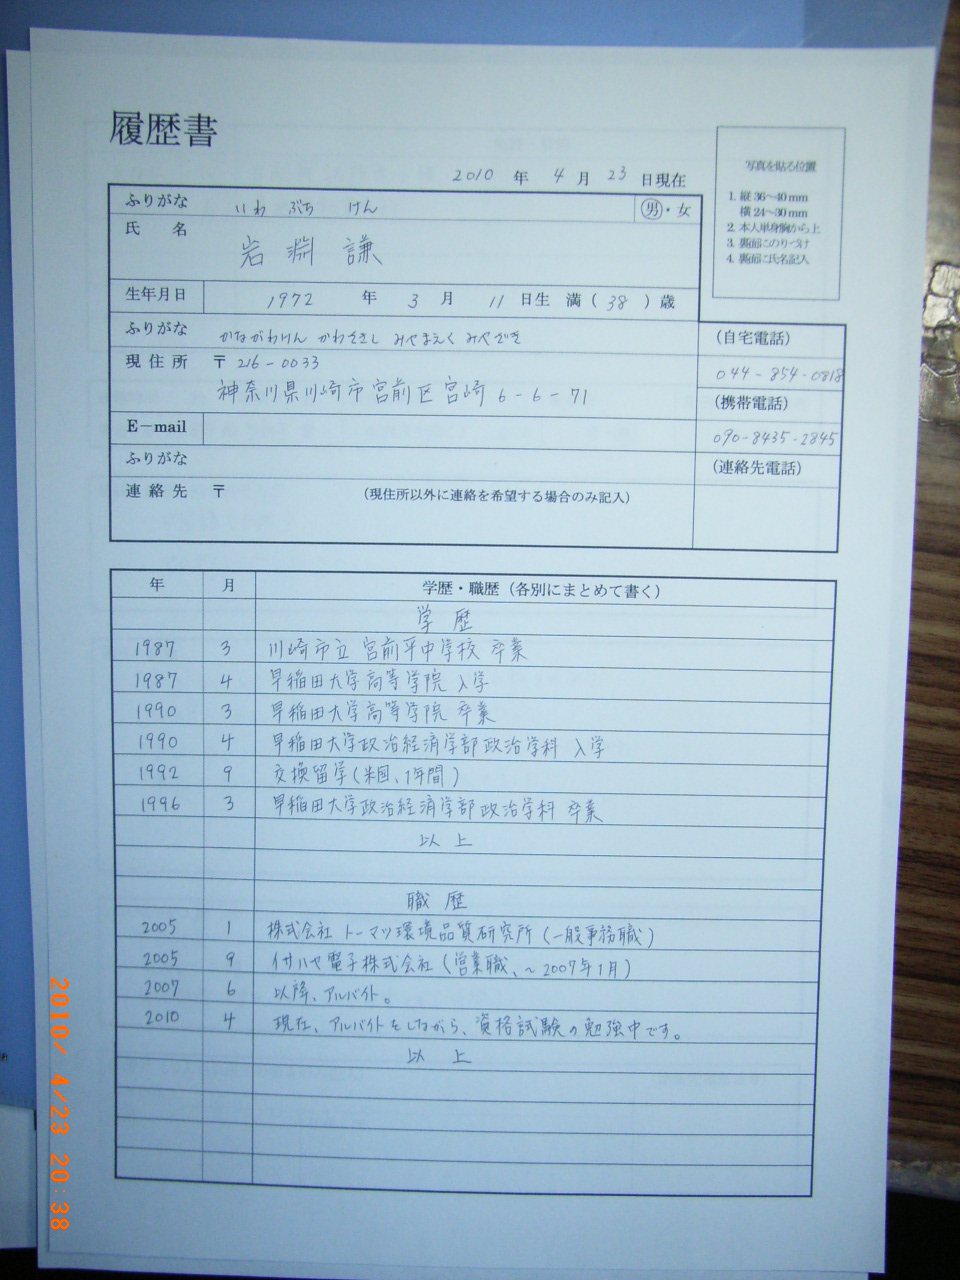 履歴書
2010 年 4 月 23 日現在
写真を貼る位置
1. 縦 36～40 mm
横 24～30 mm
2. 本人単身胸から上
3. 裏面にのりづけ
4. 裏面に氏名記入
ふりがな いわ ぶち けん 男・女
氏 名 岩 淵 謙
生年月日 1972 年 3 月 11 日生 満 ( 38 ) 歳
ふりがな かながわけん かわさきし みやまえく みやざき
(自宅電話)
現 住 所 〒 216-0033
044-854-0818
神奈川県川崎市宮前区宮崎 6-6-71
(携帯電話)
E-mail
090-8435-2845
ふりがな
(連絡先電話)
連 絡 先 〒 (現住所以外に連絡を希望する場合のみ記入)
年 月 学歴・職歴 (各別にまとめて書く)
学 歴
1987 3 川崎市立 宮前平中学校 卒業
1987 4 早稲田大学高等学院 入学
1990 3 早稲田大学高等学院 卒業
1990 4 早稲田大学政治経済学部政治学科 入学
1992 9 交換留学(米国、1年間)
1996 3 早稲田大学政治経済学部政治学科 卒業
以 上
職 歴
2005 1 株式会社 トーマツ環境品質研究所 (一般事務職)
2005 9 イサハヤ電子株式会社 (営業職、～2007年1月)
2007 6 以降、アルバイト。
2010 4 現在、アルバイトをしながら、資格試験の勉強中です。
以 上
2010/ 4/23 20:38